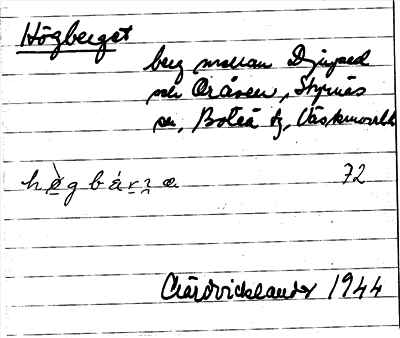 Högberget
berg mellan Djupsed
och Oråsen, Styrnäs
sn, Boteå tg, Västernorrl.
høgbárɲa 72
1944